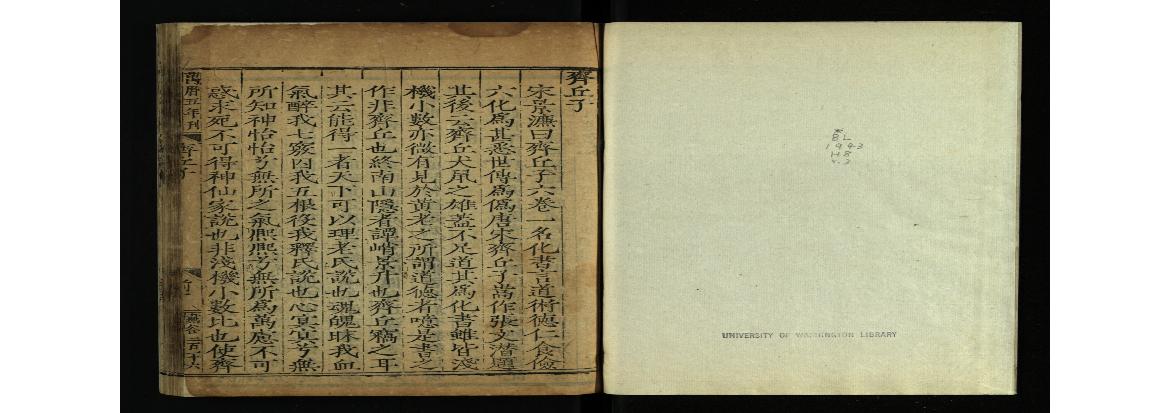 齊丘子
宋景濂曰齊丘子六卷一名化書言道術德仁食儉
六化為甚悉世傳為偽唐宋齊丘子嵩作張文潛題
其後云齊丘犬鼠之雄蓋不足道其為化書雖皆淺
機小數亦微有見於黃老之所謂道德者噫是書之
作非齊丘也終南山隱者譚峭景升也齊丘竊之耳
其云能得一者天下可以理老氏說也魂魄昧我血
氣醉我七竅囚我五根役我釋氏說也心冥冥兮無
所知神怡怡兮無所之氣熙熙兮無所為萬慮不可
惑求死不可得神仙家說也非淺機小數比也使齊
萬曆五年刊
齊丘子
BL
1943
H8
v.3
UNIVERSITY OF WASHINGTON LIBRARY